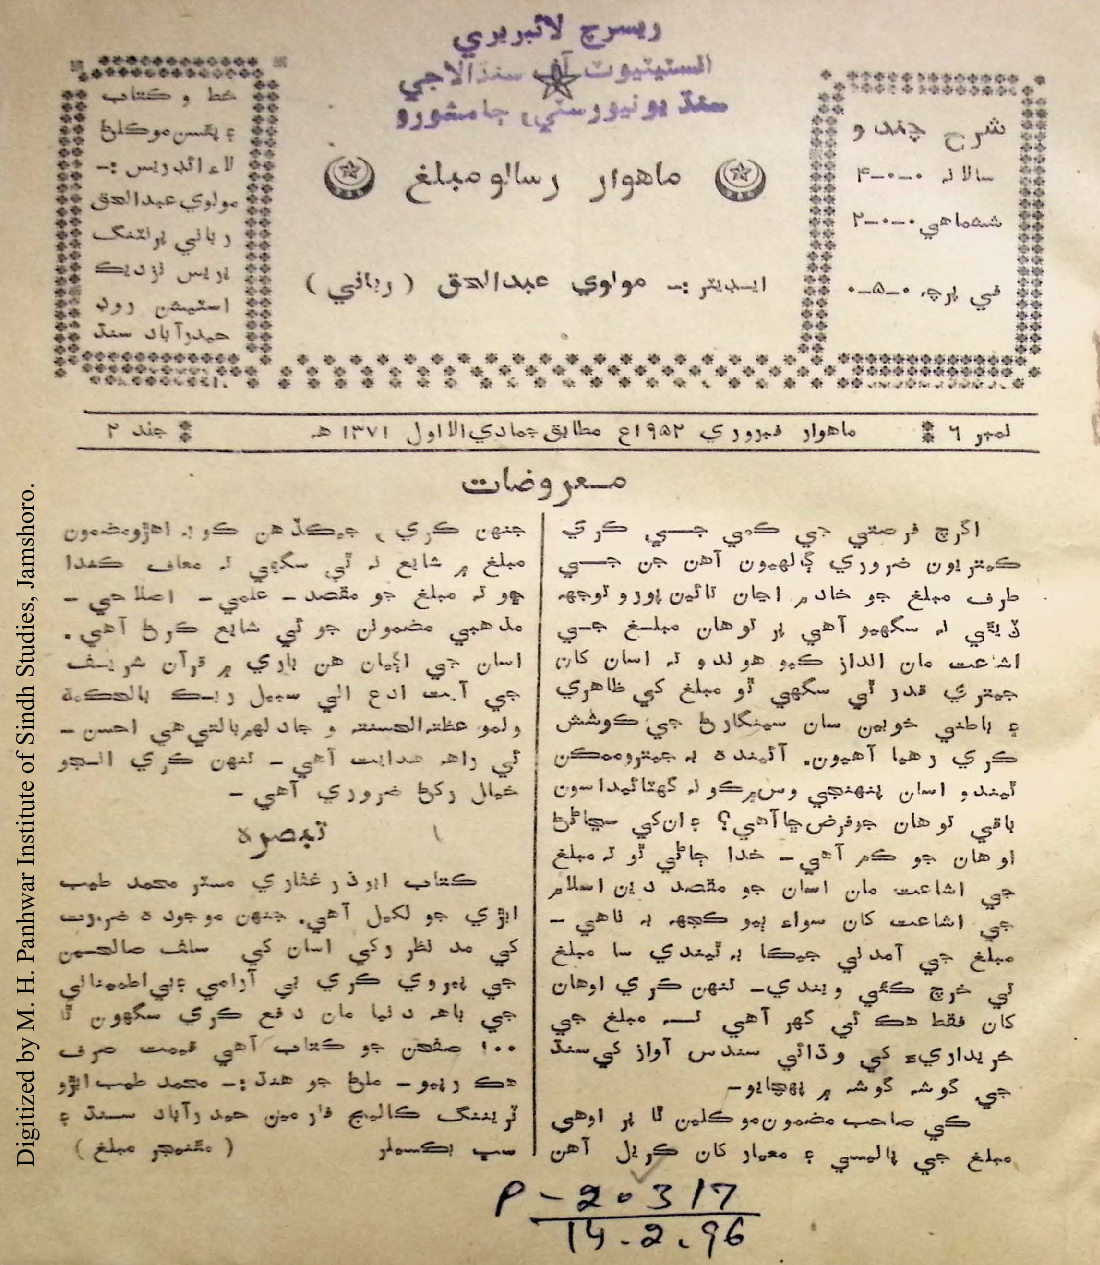 ريسرچ لائبريري
انسٽيٽيوٽ آف سنڌالاجي
سنڌ يونيورسٽي، ڄامشورو
شرح چندو
سالانہ ۰-۰-۴
ششماهي ۰-۰-۲
في پرچہ ۰-۵-۰
ماهوار رسالو مبلغ
ايڊيٽر :- مولوي عبدالحق (رباني)
خط و ڪتاب
۽ پئسن موڪلڻ
لاءِ ائڊريس :-
مولوي عبدالحق
رباني پرنٽنگ
پريس نزديڪ
اسٽيشن روڊ
حيدرآباد سنڌ
نمبر ۶
ماهوار فبروري ۱۹۵۲ع مطابق جمادي الاول ۱۳۷۱ هـ
جلد ۲
معروضات
اگرچ فرصتي جي ڪمي جي ڪري
ڪيتريون ضروري ڳالهيون آهن جن جي
طرف مبلغ جو خادم اڃان تائين پورو توجهہ
ڏيئي نہ سگهيو آهي پر توهان مبلغ جي
اشاعت مان انداز ڪيو هوندو تہ اسان کان
جيتري قدر ٿي سگهي ٿو مبلغ کي ظاهري
۽ باطني خوبين سان سينگارڻ جي ڪوشش
ڪري رهيا آهيون. آئينده بہ جيترو ممڪن
ٿيندو اسان پنهنجي وس ۾ ڪو نہ گهٽائينداسون
باقي توهان جو فرض ڇا آهي؟ ان کي سڃاڻڻ
اوهان جو ڪم آهي- خدا ڄاڻي ٿو تہ مبلغ
جي اشاعت مان اسان جو مقصد دين اسلام
جي اشاعت کان سواءِ ٻيو ڪجهہ بہ ناهي -
مبلغ جي آمدني جيڪا بہ ٿيندي سا مبلغ
تي خرچ ڪئي ويندي- تنهن ڪري اوهان
کان فقط هڪ ئي گهر آهي تہ مبلغ جي
خريداريءَ کي وڌائي سندس آواز کي سنڌ
جي گوشہ گوشہ ۾ پهچايو-
ڪي صاحب مضمون موڪلين ٿا پر اوهي
مبلغ جي پاليسي ۽ معيار کان ڪريل آهن
جنهن ڪري، جيڪڏهن ڪو بہ اهڙو مضمون
مبلغ ۾ شايع نہ ٿي سگهي تہ معاف ڪندا
ڇو تہ مبلغ جو مقصد- علمي- اصلاحي-
مذهبي مضمونن جو ئي شايع ڪرڻ آهي.
اسان جي اڳيان هن باري ۾ قرآن شريف
جي آيت ادع الي سبيل ربڪ بالحڪمة
والموعظة الحسنة و جادلهم بالتي هي احسن -
ئي راهہ هدايت آهي - تنهن ڪري انجو
خيال رکڻ ضروري آهي -
تبصره
ڪتاب ابوذر غفاري مسٽر محمد طيب
ابڙي جو لکيل آهي. جنهن موجوده ضرورت
کي مد نظر رکي اسان کي سلف صالحين
جي پيروي ڪري بي آرامي ۽ بي اطميناني
جي باهہ دنيا مان دفع ڪري سگهون ٿا
۱۰۰ صفحن جو ڪتاب آهي قيمت صرف
هڪ رپيو- ملڻ جو هنڌ :- محمد طيب ابڙو
ٽريننگ ڪاليج فار مين حيدرآباد سنڌ ۽
سڀ بڪسيلر
(مئنيجر مبلغ)
P-20317
14.2.96
Digitized by M. H. Panhwar Institute of Sindh Studies, Jamshoro.